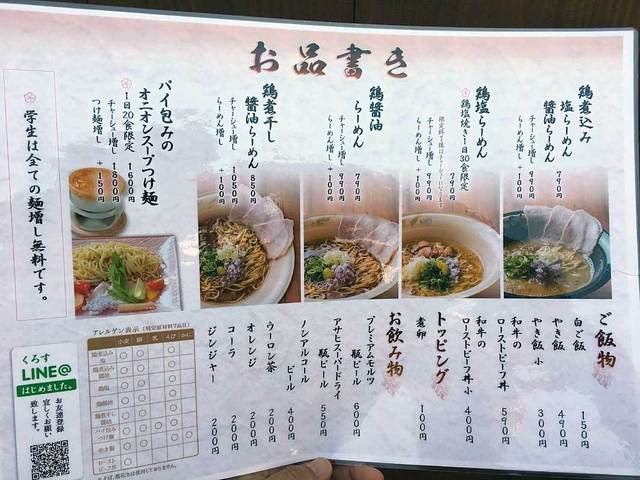 お品書き
鶏煮込み
塩らーめん 790円
醤油らーめん 790円
チャーシュー増し 990円
らーめん増し +100円
鶏塩らーめん 790円
鶏塩焼き1日30食限定
チャーシュー増し 990円
らーめん増し +100円
鶏醤油
らーめん 790円
チャーシュー増し 990円
らーめん増し +100円
鶏煮干し
醤油らーめん 850円
チャーシュー増し 1050円
らーめん増し +100円
パイ包みの
オニオンスープつけ麺
1日20食限定 1600円
チャーシュー増し 1800円
つけ麺増し +150円
学生は全ての麺増し無料です。
ご飯物
白ご飯 150円
やき飯 490円
やき飯 小 300円
和牛の
ローストビーフ丼 590円
和牛の
ローストビーフ丼 小 400円
トッピング
煮卵 100円
お飲み物
プレミアムモルツ
瓶ビール 600円
アサヒスーパードライ
瓶ビール 550円
ノンアルコール
ビール 400円
ウーロン茶 200円
オレンジ 200円
コーラ 200円
ジンジャー 200円
アレルゲン表示(特定原材料7品目)
小麦 卵 乳 えび かに
鶏煮込み
塩
鶏煮込み
醤油
鶏塩
鶏醤油
鶏煮干し
醤油
パイ包み
つけ麺
やき飯
ロースト
ビーフ丼
※そば、落花生は使用しておりません。
くろす
LINE@
はじめました。
お友達登録
宜しくお願い
致します。